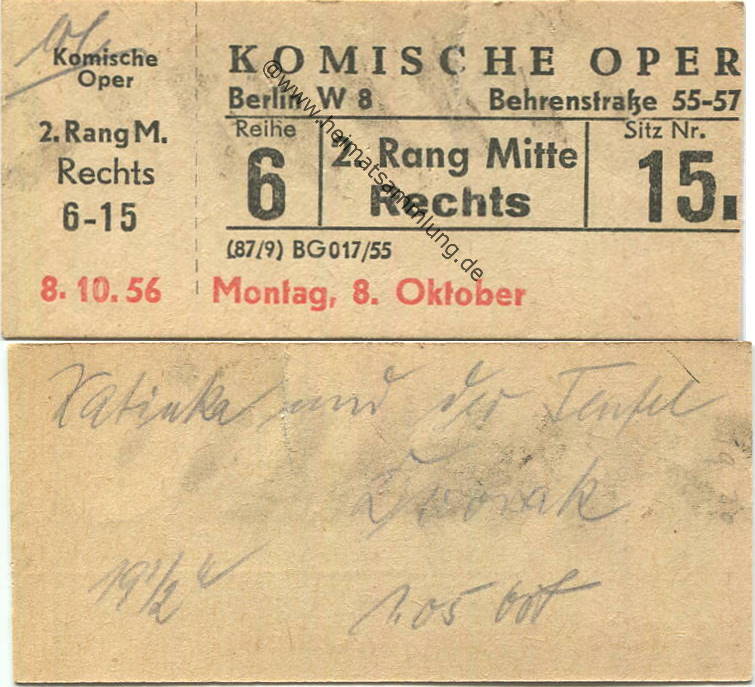 Komische
Oper
2. Rang M.
Rechts
6-15
8. 10. 56
KOMISCHE OPER
Berlin W 8 Behrenstraße 55-57
Reihe
6
2. Rang Mitte
Rechts
Sitz Nr.
15.
(87/9) BG 017/55
Montag, 8. Oktober
@www.heimatsammlung.de
Katinka und der Teufel
Dvorak
19 1/2 h